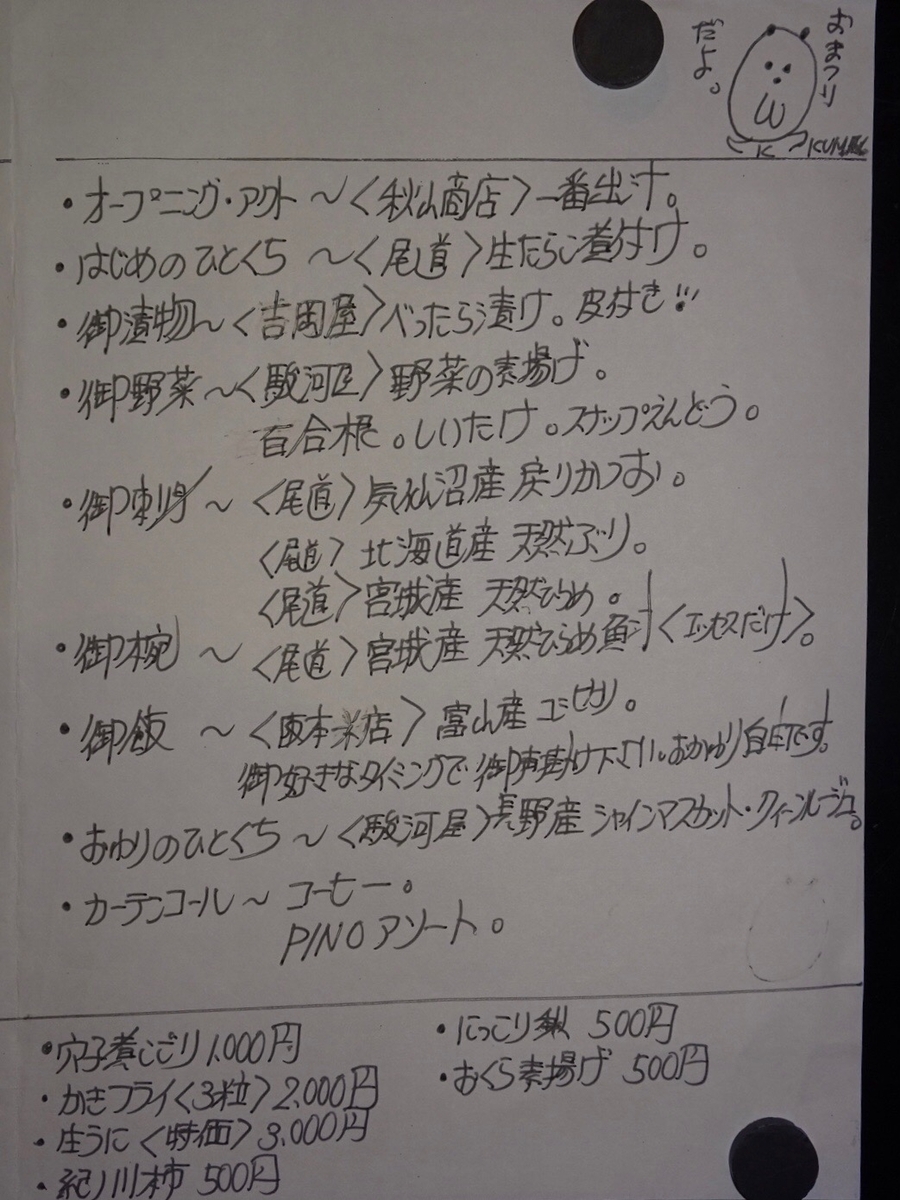 おまつり
だよ。
・オープニング・アクト〜〈秋山商店〉一番出汁。
・はじめのひとくち〜〈尾道〉生たらこ煮付け。
・御漬物〜〈吉岡屋〉べったら漬け。皮付き!!
・御野菜〜〈駿河屋〉野菜の素揚げ。
百合根。しいたけ。スナップえんどう。
・御刺身〜〈尾道〉気仙沼産 戻りかつお。
〈尾道〉北海道産 天然ぶり。
〈尾道〉宮城産 天然ひらめ。
・御椀〜〈尾道〉宮城産 天然ひらめ魚汁〈エッセスだけ〉。
・御飯〜〈坂本米店〉富山産 コシヒカリ。
御好きなタイミングで御声掛け下さい。おかわり自由です。
・おわりのひとくち〜〈駿河屋〉長野産 シャインマスカット・クイーンルージュ。
・カーテンコール〜コーヒー。
PINOアソート。
・穴子煮こごり 1,000円
・かきフライ〈3粒〉2,000円
・生うに〈特価〉3,000円
・紀ノ川柿 500円
・にっこり梨 500円
・おくら素揚げ 500円